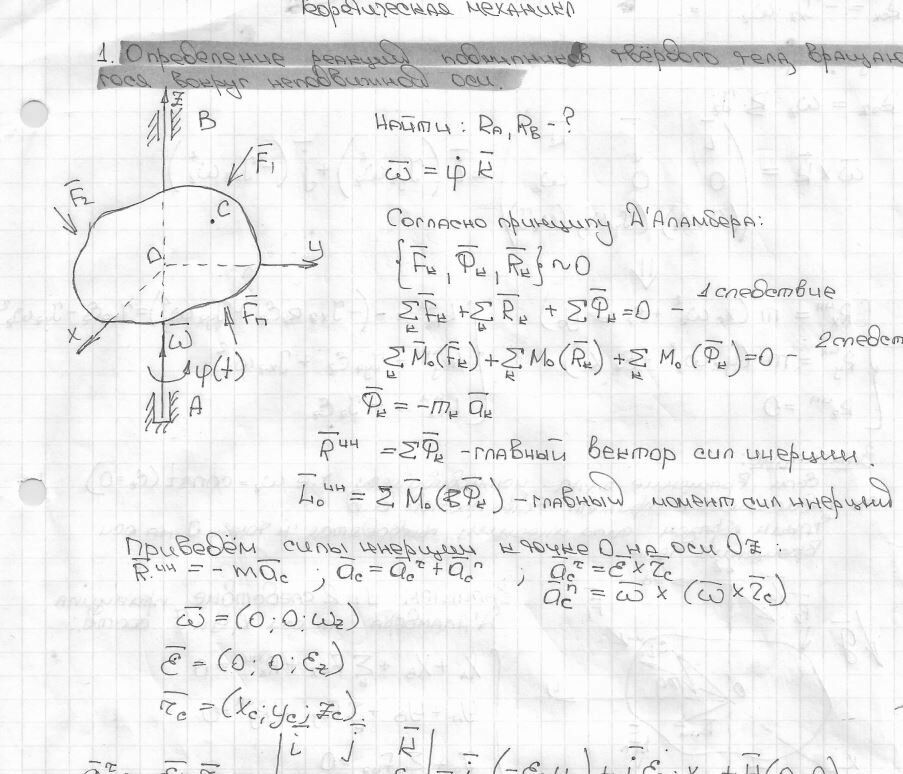 Теоретическая механика
1. Определение реакций подшипников твёрдого тела, вращаю
гося вокруг неподвижной оси.
z
B
F̄₁
F̄₂
C
O
y
x
F̄ₙ
ω̄
φ(t)
A
Найти: R_A, R_B - ?
ω̄ = φ̇ k̄
Согласно принципу Д'Аламбера:
{F̄ₖ, Φ̄ₖ, R̄ₖ} ~ 0
∑ₖ F̄ₖ + ∑ₖ R̄ₖ + ∑Φ̄ₖ = 0 - 1 следствие
∑ₖ M̄₀(F̄ₖ) + ∑ₖ M₀(R̄ₖ) + ∑ₖ M₀(Φ̄ₖ) = 0 - 2 следст
Φ̄ₖ = -mₖ āₖ
R̄ᴵᴴ = ∑Φ̄ₖ - главный вектор сил инерции.
L̄₀ᴵᴴ = ∑ M̄₀(Φ̄ₖ) - главный момент сил инерции
Приведём силы инерции к точке O на оси Oz:
R̄ᴵᴴ = -mā_c ; ā_c = ā_c^τ + ā_c^n ; ā_c^τ = ε̄ × r̄_c
ā_c^n = ω̄ × (ω̄ × r̄_c)
ω̄ = (0; 0; ω_z)
ε̄ = (0; 0; ε_z)
r̄_c = (x_c; y_c; z_c)
| ī j̄ k̄ |